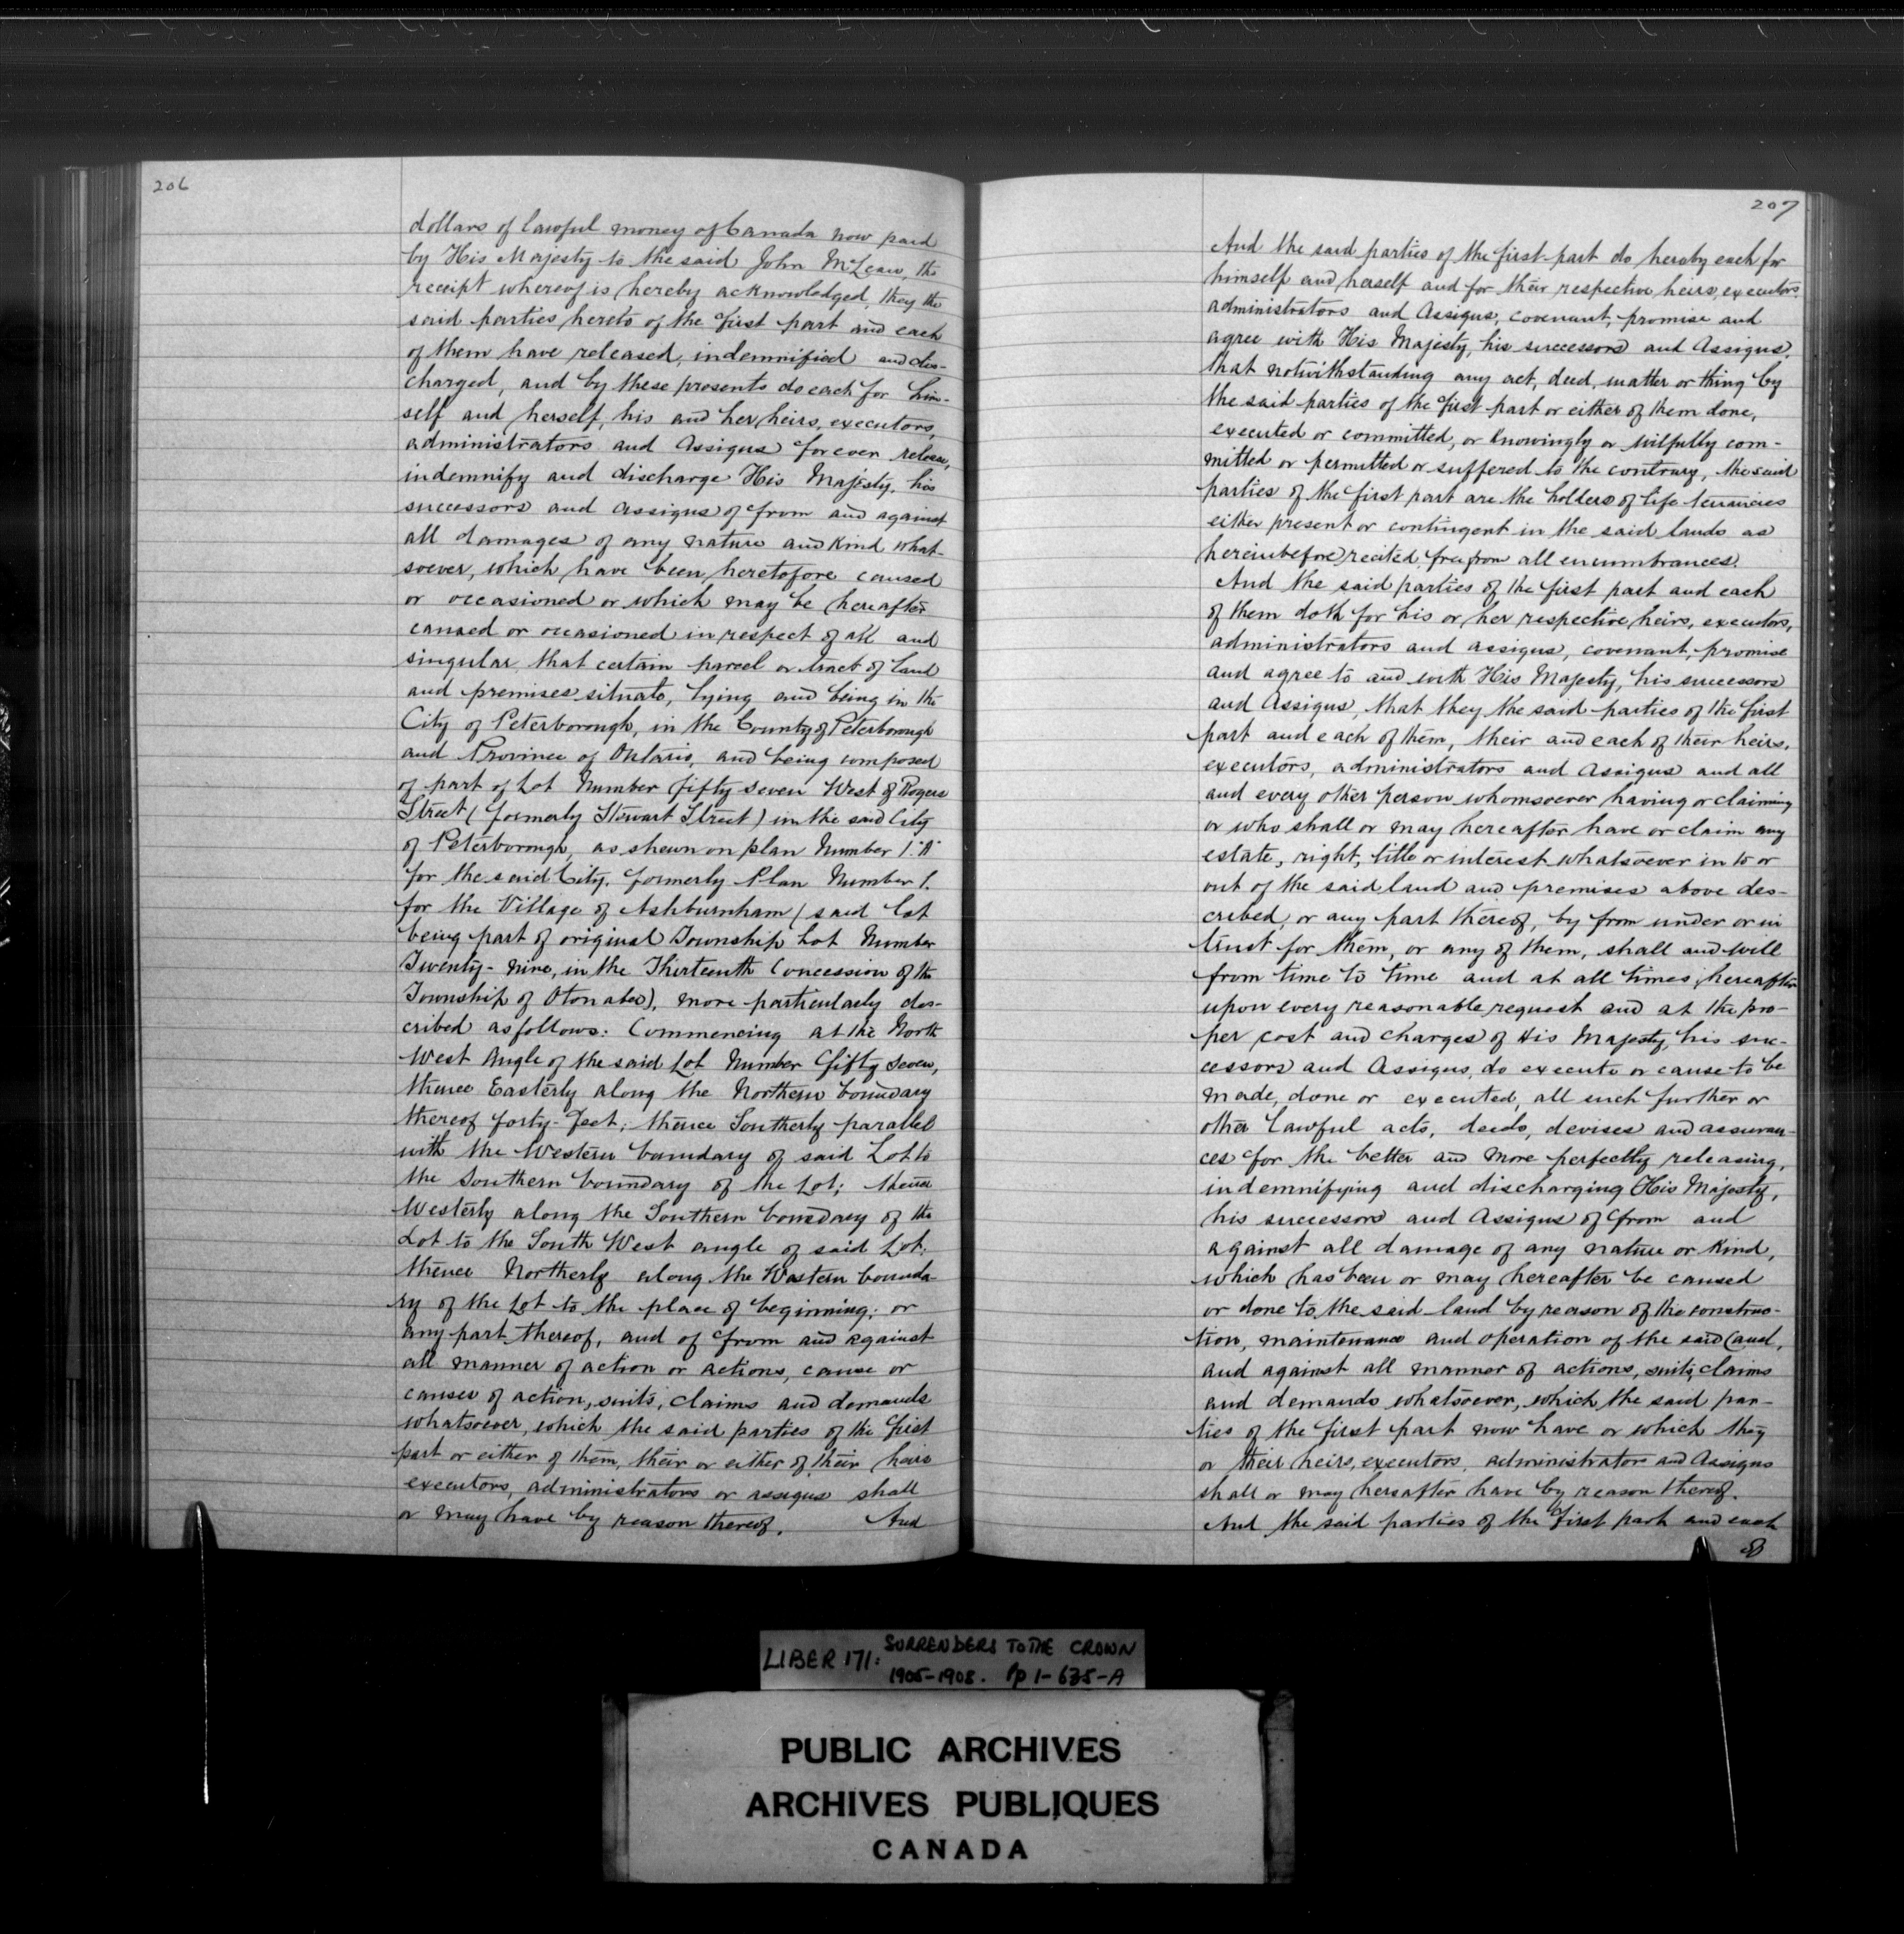 206
dollars of lawful money of Canada now paid
by His Majesty to the said John McLean, the
receipt whereof is hereby acknowledged, they the
said parties hereto of the first part and each
of them have released, indemnified and dis-
charged, and by these presents do each for him-
self and herself, his and her heirs, executors,
administrators and Assigns forever release,
indemnify and discharge His Majesty, his
successors and assigns of from and against
all damages of any nature and kind what-
soever, which have been heretofore caused
or occasioned or which may be hereafter
caused or occasioned in respect of all and
singular that certain parcel or tract of land
and premises situate, lying and being in the
City of Peterborough, in the County of Peterborough
and Province of Ontario, and being composed
of part of Lot Number fifty seven West of Rogers
Street (formerly Stewart Street) in the said City
of Peterborough, as shewn on plan Number 1."A"
for the said City, formerly Plan Number 1.
for the Village of Ashburnham (said lot
being part of original Township Lot Number
Twenty-nine, in the Thirteenth Concession of the
Township of Otonabee), more particularly des-
cribed as follows: Commencing at the North
West Angle of the said Lot Number fifty seven,
thence Easterly along the Northern boundary
thereof forty-feet; thence Southerly parallel
with the Western boundary of said Lot to
the Southern boundary of the Lot; thence
Westerly along the Southern boundary of the
Lot to the South West angle of said Lot;
thence Northerly along the Western bounda-
ry of the Lot to the place of beginning; or
any part thereof, and of from and against
all manner of action or actions, cause or
causes of action, suits, claims and demands
whatsoever, which the said parties of the first
part or either of them, their or either of their heirs
executors, administrators or assigns shall
or may have by reason thereof. And
207
And the said parties of the first part do hereby each for
himself and herself and for their respective heirs, executors,
administrators and Assigns, covenant, promise and
agree with His Majesty, his successors and Assigns,
that notwithstanding any act, deed, matter or thing by
the said parties of the first part or either of them done,
executed or committed, or knowingly or wilfully com-
mitted or permitted or suffered to the contrary, the said
parties of the first part are the holders of life tenancies
either present or contingent in the said lands as
hereinbefore recited free from all encumbrances.
And the said parties of the first part and each
of them doth for his or her respective heirs, executors,
administrators and assigns, covenant, promise
and agree to and with His Majesty, his successors
and Assigns, that they the said parties of the first
part and each of them, their and each of their heirs,
executors, administrators and Assigns and all
and every other person whomsoever having or claiming
or who shall or may hereafter have or claim any
estate, right, title or interest whatsoever in to or
out of the said land and premises above des-
cribed, or any part thereof, by from under or in
trust for them, or any of them, shall and will
from time to time and at all times, hereafter
upon every reasonable request and at the pro-
per cost and charges of His Majesty, his suc-
cessors and Assigns, do execute or cause to be
made, done or executed, all such further or
other lawful acts, deeds, devises and assuran-
ces for the better and more perfectly releasing,
indemnifying and discharging His Majesty,
his successors and Assigns of from and
against all damage of any nature or kind,
which has been or may hereafter be caused
or done to the said land by reason of the construc-
tion, maintenance and operation of the said Canal,
and against all manner of actions, suits, claims
and demands whatsoever, which the said par-
ties of the first part now have or which they
or their heirs, executors, administrators and Assigns
shall or may hereafter have by reason thereof.
And the said parties of the first part and each
LIBER 171: SURRENDERS TO THE CROWN
1905-1908. Pp 1-635-A
PUBLIC ARCHIVES
ARCHIVES PUBLIQUES
CANADA